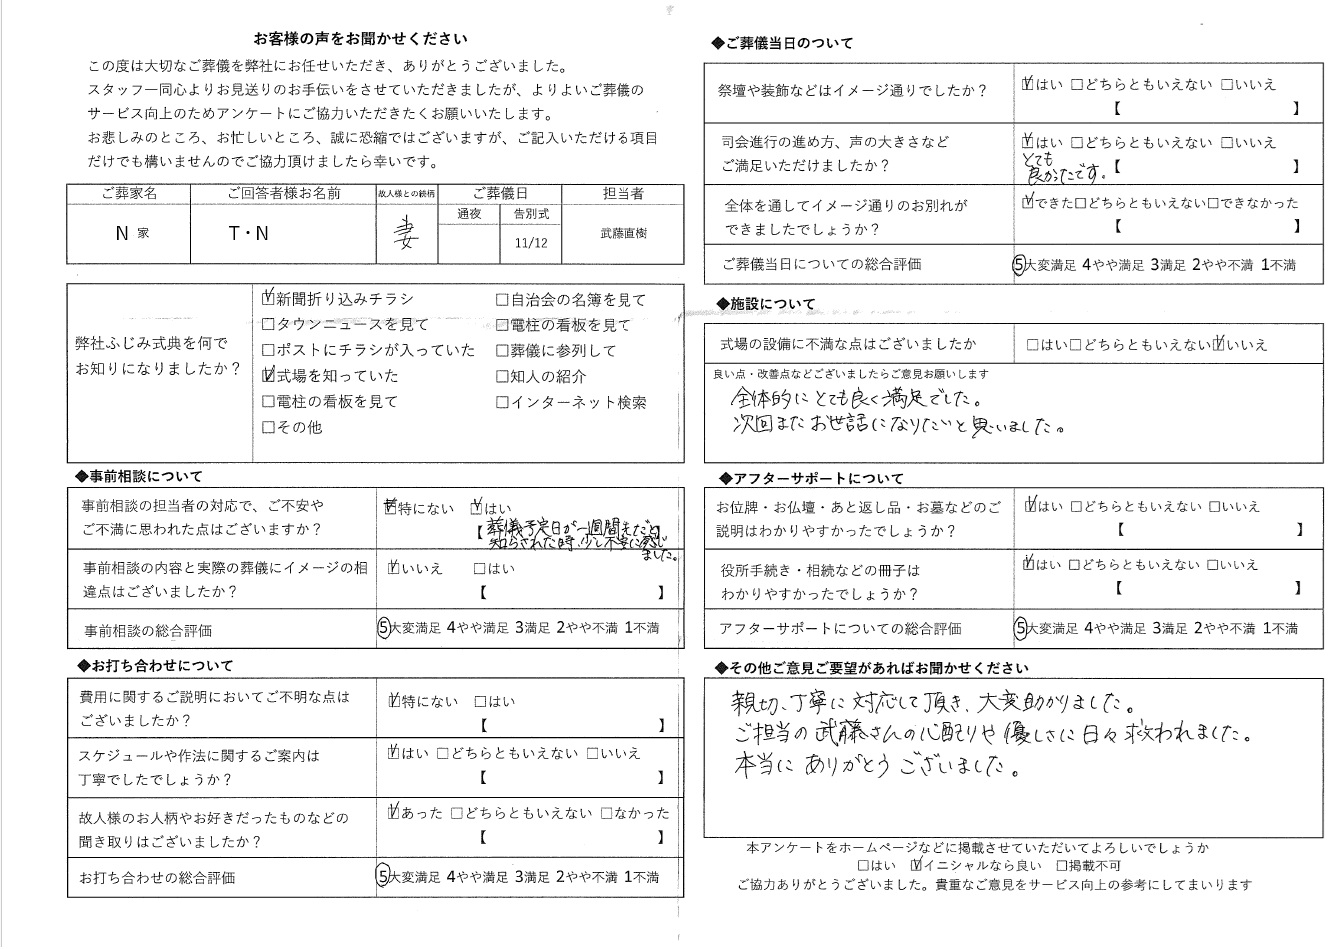 お客様の声をお聞かせください
この度は大切なご葬儀を弊社にお任せいただき、ありがとうございました。
スタッフ一同心よりお見送りのお手伝いをさせていただきましたが、よりよいご葬儀の
サービス向上のためアンケートにご協力いただきたくお願いいたします。
お悲しみのところ、お忙しいところ、誠に恐縮ではございますが、ご記入いただける項目
だけでも構いませんのでご協力頂けましたら幸いです。
ご葬家名 ご回答者様お名前 故人様との続柄 ご葬儀日 担当者
通夜 告別式
N 家 T・N 妻 11/12 武藤直樹
弊社ふじみ式典を何で
お知りになりましたか？
☑新聞折り込みチラシ □自治会の名簿を見て
□タウンニュースを見て □電柱の看板を見て
□ポストにチラシが入っていた □葬儀に参列して
☑式場を知っていた □知人の紹介
□電柱の看板を見て □インターネット検索
□その他
◆事前相談について
事前相談の担当者の対応で、ご不安や
ご不満に思われた点はございますか？
☑特にない ☑はい
【葬儀予定日が一週間先だと】
知らされた時、少し不安に感じ
ました。
事前相談の内容と実際の葬儀にイメージの相
違点はございましたか？
☑いいえ □はい
【 】
事前相談の総合評価 ⑤大変満足 4やや満足 3満足 2やや不満 1不満
◆お打ち合わせについて
費用に関するご説明においてご不明な点は
ございましたか？
☑特にない □はい
【 】
スケジュールや作法に関するご案内は
丁寧でしたでしょうか？
☑はい □どちらともいえない □いいえ
【 】
故人様のお人柄やお好きだったものなどの
聞き取りはございましたか？
☑あった □どちらともいえない □なかった
【 】
お打ち合わせの総合評価 ⑤大変満足 4やや満足 3満足 2やや不満 1不満
◆ご葬儀当日のついて
祭壇や装飾などはイメージ通りでしたか？
☑はい □どちらともいえない □いいえ
【 】
司会進行の進め方、声の大きさなど
ご満足いただけましたか？
☑はい □どちらともいえない □いいえ
とても
良かったです。【 】
全体を通してイメージ通りのお別れが
できましたでしょうか？
☑できた□どちらともいえない□できなかった
【 】
ご葬儀当日についての総合評価 ⑤大変満足 4やや満足 3満足 2やや不満 1不満
◆施設について
式場の設備に不満な点はございましたか □はい□どちらともいえない☑いいえ
良い点・改善点などございましたらご意見お願いします
全体的にとても良く満足でした。
次回またお世話になりたいと思いました。
◆アフターサポートについて
お位牌・お仏壇・あと返し品・お墓などのご
説明はわかりやすかったでしょうか？
☑はい □どちらともいえない □いいえ
【 】
役所手続き・相続などの冊子は
わかりやすかったでしょうか？
☑はい □どちらともいえない □いいえ
【 】
アフターサポートについての総合評価 ⑤大変満足 4やや満足 3満足 2やや不満 1不満
◆その他ご意見ご要望があればお聞かせください
親切、丁寧に対応して頂き、大変助かりました。
ご担当の武藤さんの心配りや優しさに日々救われました。
本当にありがとうございました。
本アンケートをホームページなどに掲載させていただいてよろしいでしょうか
□はい ☑イニシャルなら良い □掲載不可
ご協力ありがとうございました。貴重なご意見をサービス向上の参考にしてまいります